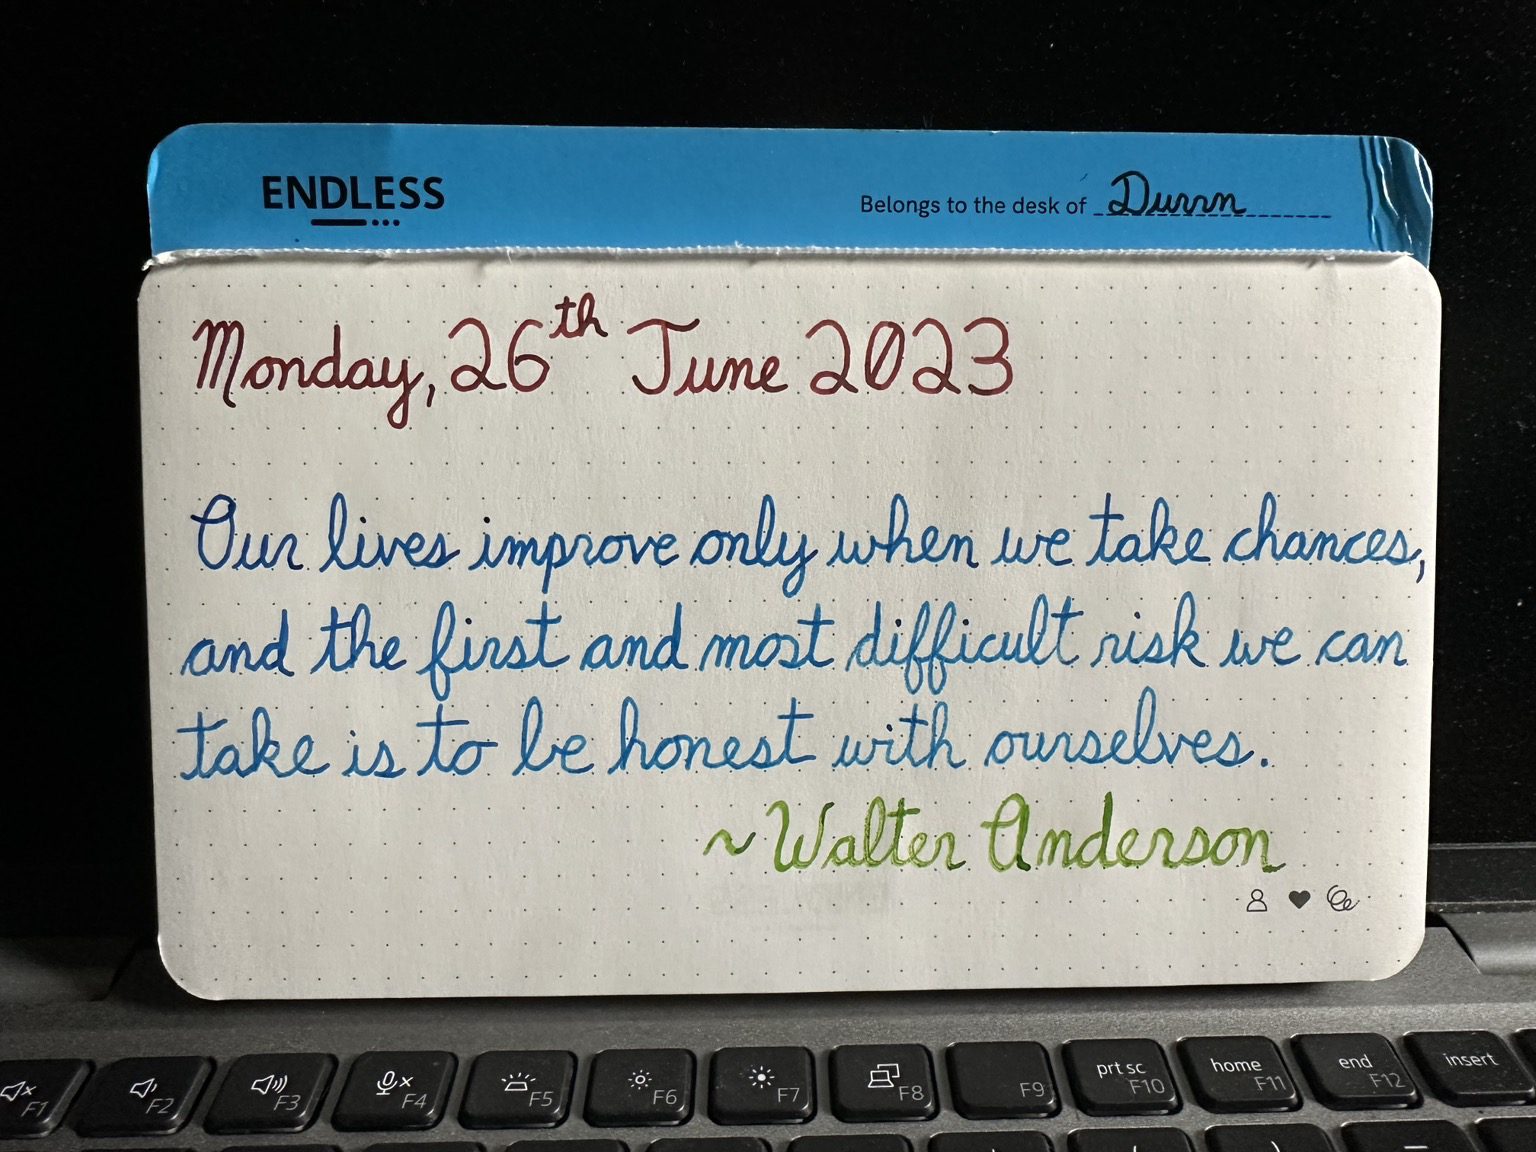 ENDLESS
Belongs to the desk of Durrn
Monday, 26th June 2023
Our lives improve only when we take chances,
and the first and most difficult risk we can
take is to be honest with ourselves.
~Walter Anderson
F1 F2 F3 F4 F5 F6 F7 F8 F9 prt sc F10 home F11 end F12 insert